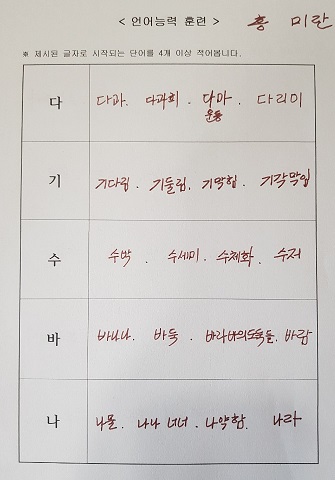 < 언어능력 훈련 > 홍 미란
※ 제시된 글자로 시작되는 단어를 4개 이상 적어봅니다.
다 다과. 다과회. 다마운동. 다리미
기 기다림. 기둘림. 기막힘. 기각막입
수 수박. 수세미. 수채화. 수저
바 바나나. 바둑. 바라바의도둑들. 바람
나 나물. 나나 너너. 나약함. 나라